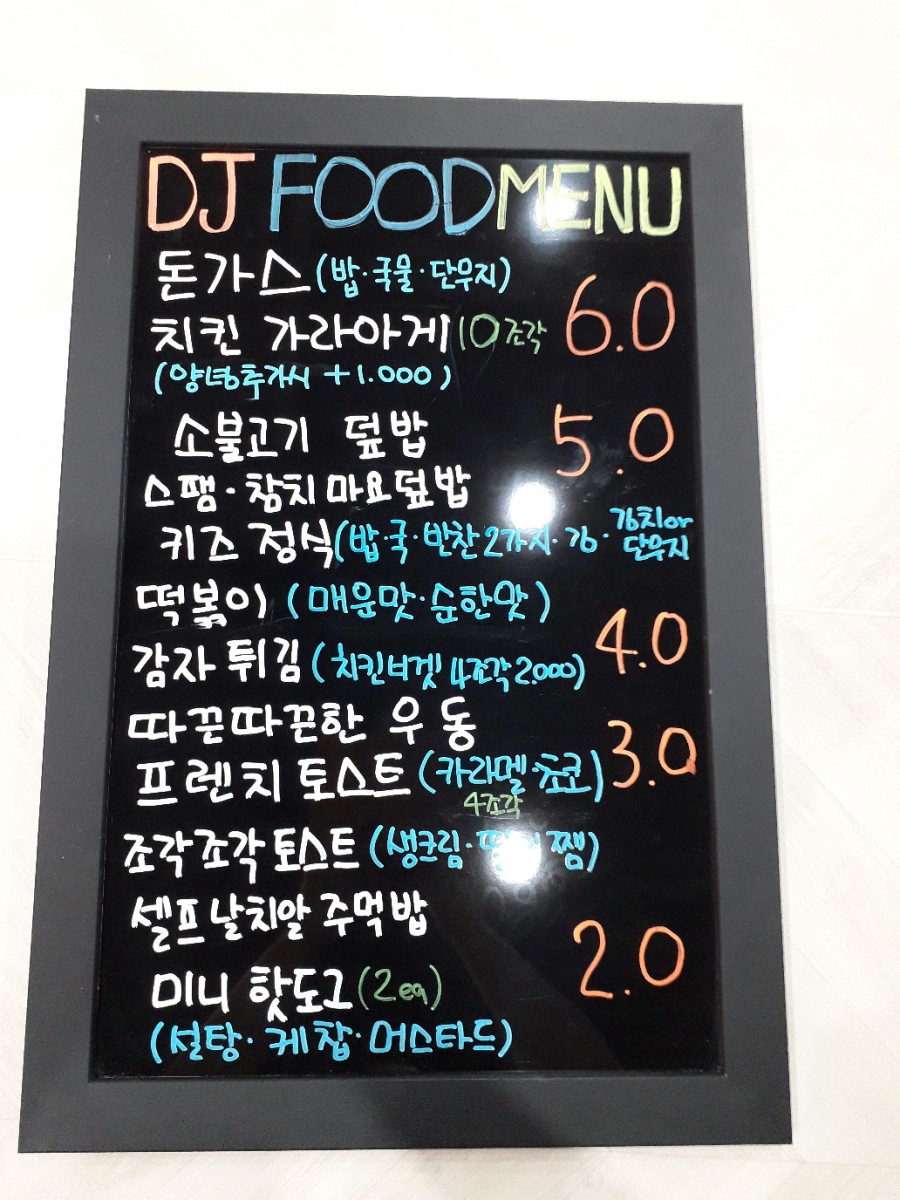 DJ FOOD MENU
돈가스 (밥·국물·단무지)
치킨 가라아게 10조각 6.0
(양념추가시 +1.000)
소불고기 덮밥 5.0
스팸·참치마요덮밥
키즈 정식(밥·국·반찬2가지·김·김치or
단무지
떡볶이 (매운맛·순한맛)
감자 튀김 (치킨너겟 4조각 2.000) 4.0
따끈따끈한 우동
프렌치 토스트 (카라멜·쵸코) 3.0
4조각
조각조각 토스트 (생크림·딸기 쨈)
셀프 날치알 주먹밥
미니 핫도그 (2ea) 2.0
(설탕·케찹·머스타드)